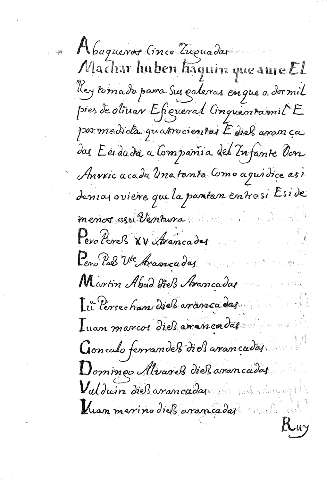 Abaqueros Cinco Zuguadas
Machar huben haquin que aure El
Rey tomado para sus galeras en que a dos mil
pies de olivar E figueral Cinquenta mil E
por medida quatrocientas E dies arança
das E es dada a Compañia del Infante Don
Anrric a cada Una tanto Como aqui dice asi
demas oviere que la partan entresi E si de
menos a su Ventura.
Pero Pereß XV Arancadas
Pero Paß Vte Arancadas
Martin Abad dieß Arancadas
Iuº Persechan dieß arancadas.
Iuan marcos dieß arancadas
Goncalo ferrandeß dieß arancadas.
Domingo Alvareß dieß arancadas
Valduin dieß arancadas
Yuan merino dieß arancadas
Ruy